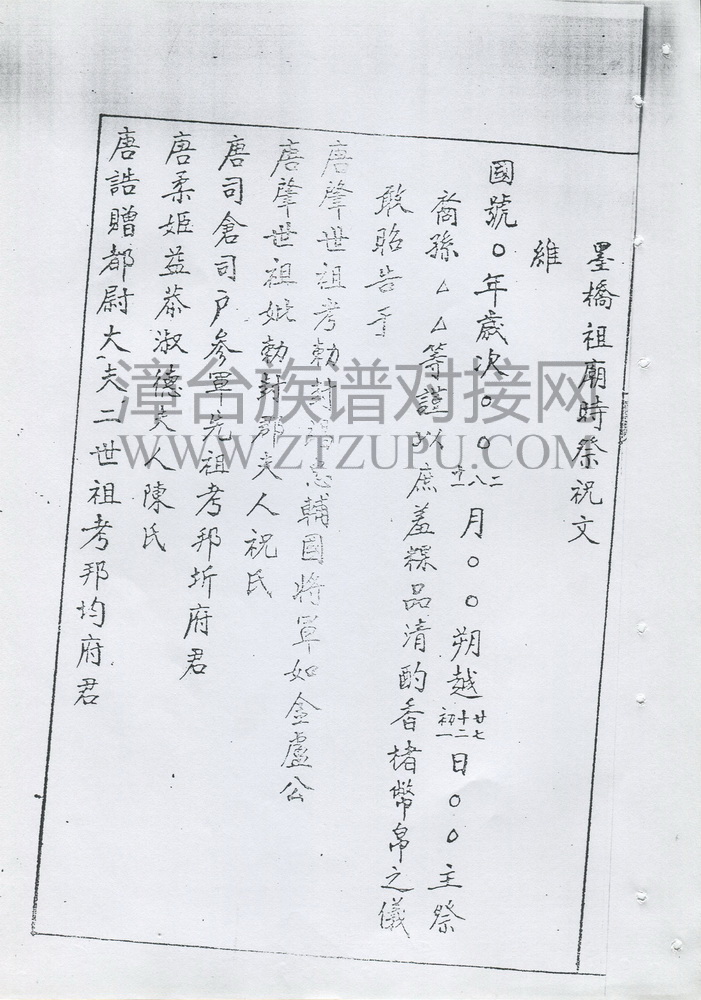 墨橋祖廟時祭祝文
維
國號〇年歲次〇〇二八十一月〇〇朔越廿七十二初一日〇〇主祭
裔孫△△等謹以庶羞粿品清酌香楮幣帛之儀
敢昭告于
唐肇世祖考勅封 輔國將軍如金盧公
唐肇世祖妣勅封郡夫人祝氏
唐司倉司戶參軍先祖考邦圻府君
唐柔姬益恭淑德夫人陳氏
唐誥贈都尉大夫二世祖考邦均府君
漳台族谱对接网
WWW.ZTZUPU.COM